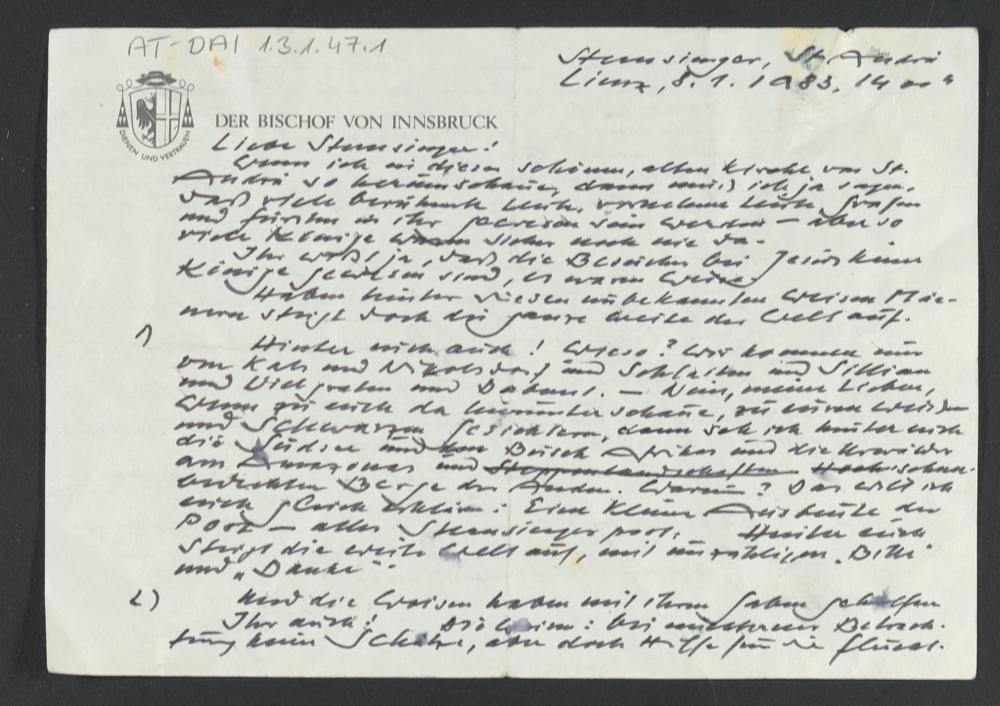 AT-DAI 1.3.1.47.1
Sternsinger, St. Andrä
Lienz, 8.1.1983, 14 00 h
DIENEN UND VERTRAUEN
DER BISCHOF VON INNSBRUCK
Liebe Sternsinger!
Wenn ich in dieser schönen, alten Kirche von St.
Andrä so herumschaue, dann muß ich ja sagen,
daß viele berühmte Leute, vornehme Leute, Grafen
und Fürsten in ihr gewesen sein werden - aber so
viele Könige waren sicher noch nie da.
Ihr wißt ja, daß die Besucher bei Jesus keine
Könige gewesen sind, es waren Weise.
Haben hinter diesen unbekannten weisen Män-
nern steigt doch die ganze Weite der Welt auf.
1) Hinter euch auch! Wieso? Wir kommen nur
von Kals und Nikolsdorf und Schlaiten und Sillian
und Villgraten und Debant. - Nein, meine Lieben,
wenn zu euch da herunter schaue, zu euren weißen
und schwarzen Gesichtern, dann seh ich hinter euch
die Südsee und den Busch Afrikas und die Urwälder
am Amazonas und Steppenlandschaften Hoch schnee-
bedeckten Berge der Anden. Warum? Das will ich
euch gleich erklären: Eine kleine Ausbeute der
Post - alles Sternsingerpost. Hinter euch
steigt die weite Welt auf, mit unzähligen "Bitte"
und "Danke".
2) Und die Weisen haben mit ihren Gaben geholfen
Ihr auch! Die Weisen: bei nüchterner Betrach-
tung keine Schätze, aber doch Hilfe für die Flücht-